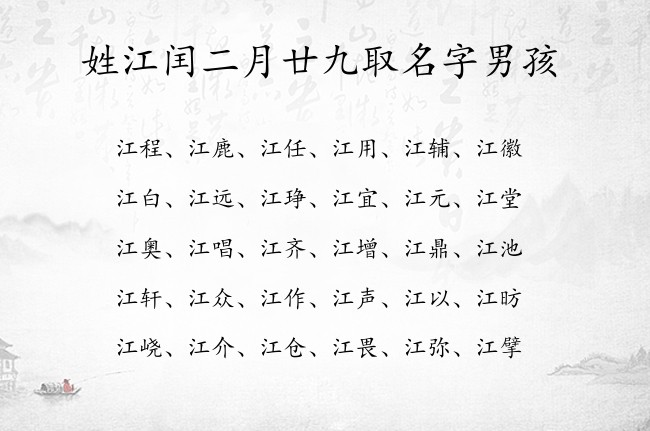 姓江闰二月廿九取名字男孩
江程、江鹿、江任、江用、江辅、江徽
江白、江远、江琤、江宜、江元、江堂
江奥、江唱、江齐、江增、江鼎、江池
江轩、江众、江作、江声、江以、江昉
江峣、江介、江仓、江畏、江弥、江擘